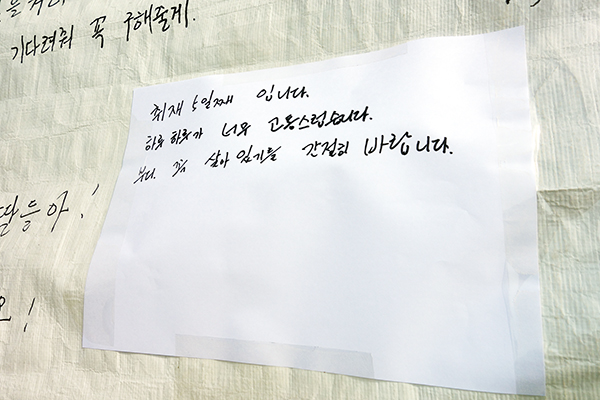 기다려줘 꼭 구해줄게.
취재 5일째 입니다.
하루 하루가 너무 고통스럽습니다.
부디. 꼭 살아 있기를 간절히 바랍니다.
딸들아!
요!